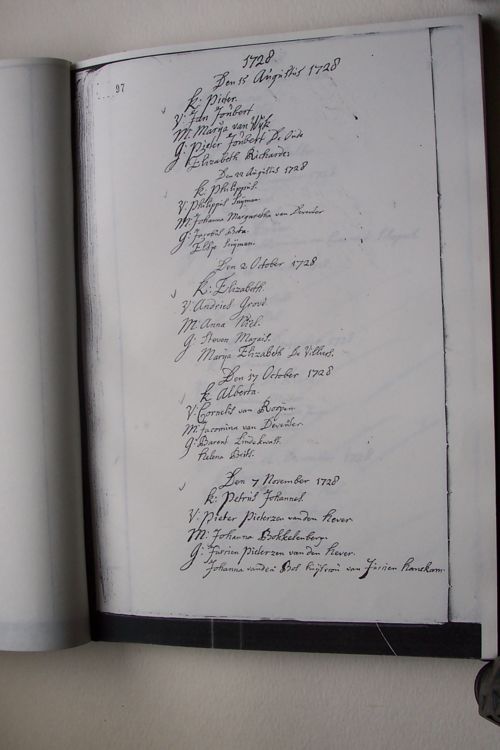 97
1728
Den 15 Augustus 1728
K: Pieter.
V: Jan Joubert.
M: Marija van Wÿk
G: Pieter Joubert De Oude
Elizabeth Richarde.
Den 22 Augustus 1728
K: Philippus.
V: Philippus Snijman.
M: Johanna Margaretha van Deventer
G: Jacobus Bota.
Elsje Snijman.
Den 2 October 1728
K: Elizabeth.
V: Andries Grové.
M: Anna Niel.
G: Steven
Marija Elizabeth De Villiers.
Den 17 October 1728
K: Alberta.
V: Cornelis van Rooijen
M: Jacomina van Deventer.
G: Barent Lindekwatt.
Helena Brits.
Den 7 November 1728
K: Petrus Johannes.
V: Pieter Pieterzen vanden Hever.
M: Johanna Bokkelenberg.
G: Jurrien Pieterzen van den Hever.
Johanna vanden Bos huijsvroú van Jurrien Hanekom.